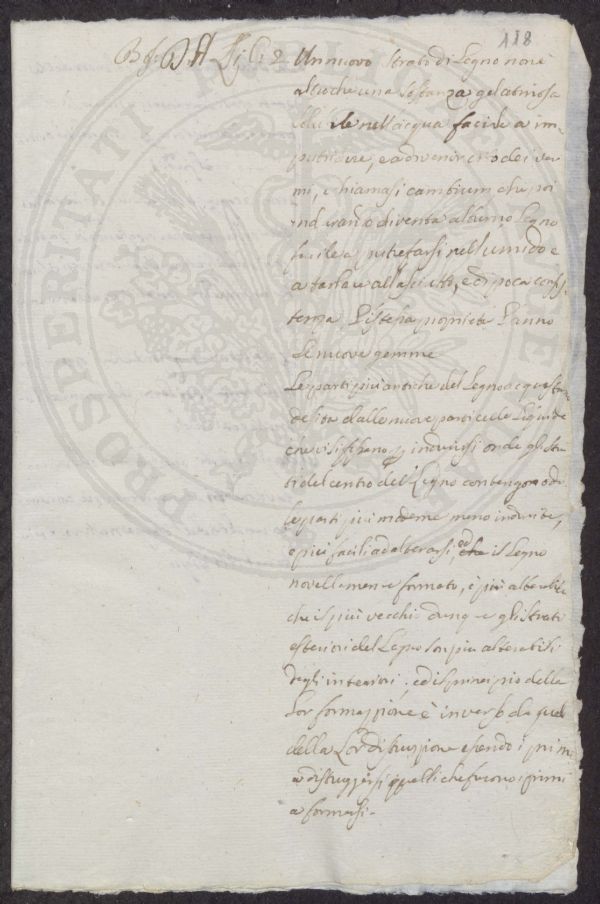 118
Un nuovo strato di Legno non è
altro che una sostanza gelatinosa
nell'acqua facile a im-
putridire, e a divenir cibo dei ver
mi, chiamasi cambium che poi
indurando diventa alburno Legno
facile a putrefarsi nell'umido e
a tarlare all'asciutto, e di poca consis
tenza L'istessa proprietà hanno
le nuove gemme
Le parti più antiche del Legno acquistano
densità dalle nuove particelle Liquide
che vi si fissano, indurirsi onde gli stra
ti del centro del Legno contengono
le parti più moderne meno indurite,
e più facili ad alterarsi, il Legno
novellamente formato, è più alterabile
che il più vecchio dunque gli strati
esteriori del Legno son più alterabili
degli interiori, ed il principio della
Lor formazione è inverso da quel
della Lor distruzione essendo i primi
a distruggersi quelli che furono i primi
a formarsi.
PROSPERITATI PUBLICAE